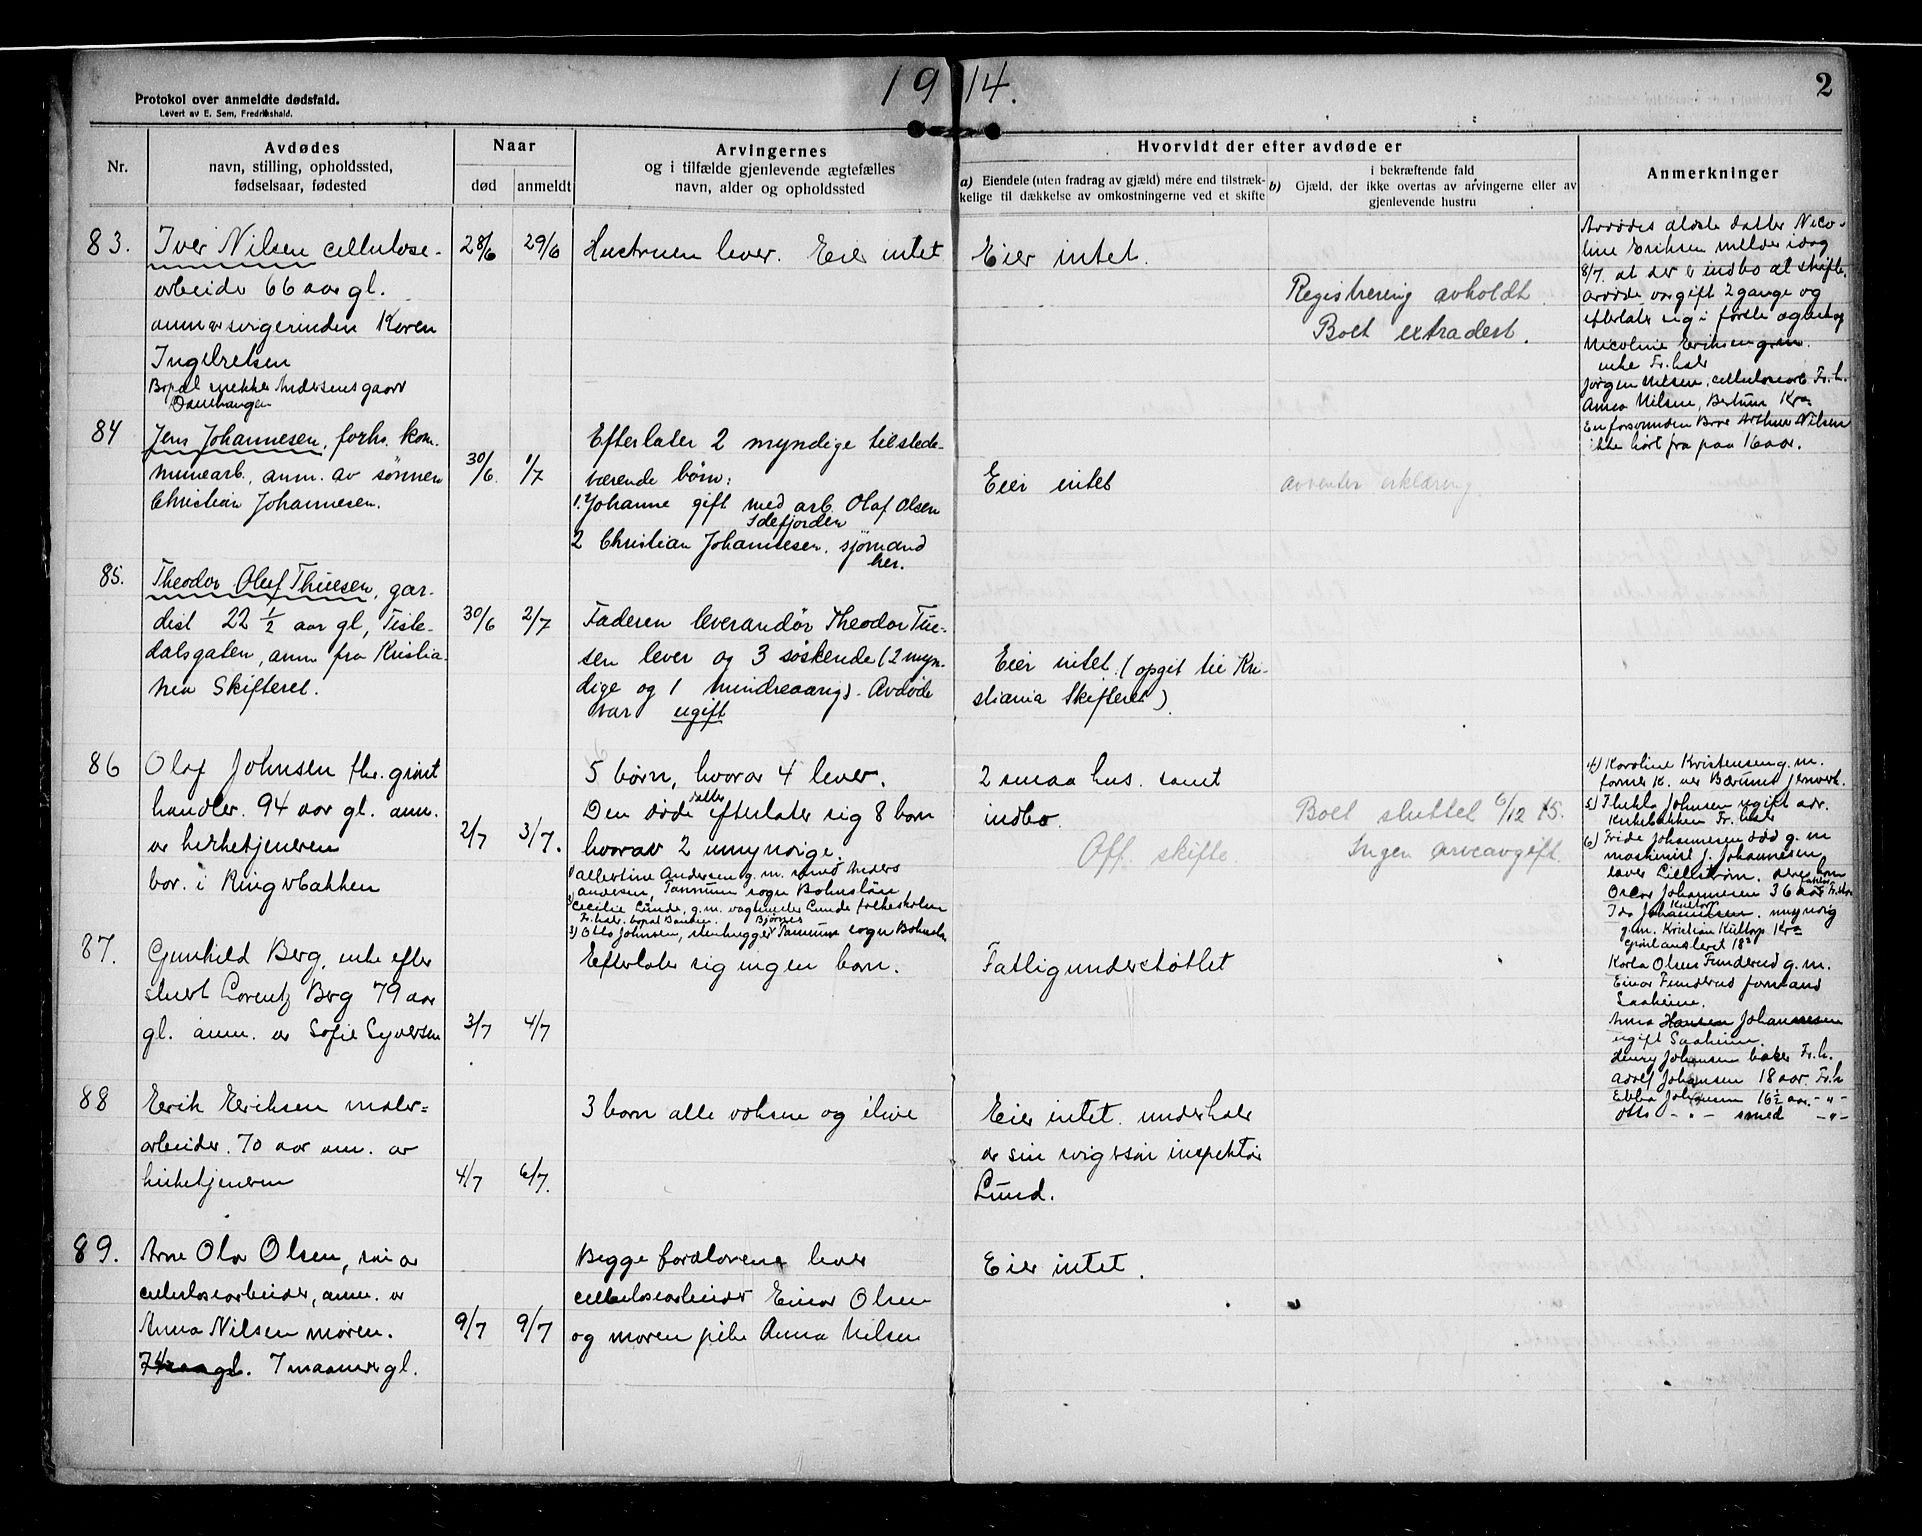 1914.
2
Protokol over anmeldte dødsfald.
Levert av E. Sem, Fredrikshald.
Nr.
Avdødes
navn, stilling, opholdssted,
fødselsaar, fødested
Naar
død
anmeldt
Arvingernes
og i tilfælde gjenlevende ægtefælles
navn, alder og opholdssted
Hvorvidt der efter avdøde er
a) Eiendele (uten fradrag av gjæld) mere end tilstræk-
kelige til dækkelse av omkostningerne ved et skifte
i bekræftende fald
b) Gjæld, der ikke overtas av arvingerne eller av
gjenlevende hustru
Anmerkninger
83.
Iver Nilsen cellulose-
arbeider 66 aar gl.
anm av svigerinden Karen
Ingebretsen
Bopæl snekker Andersens gaard
28/6
29/6
Hustruen lever. Eier intet
Eier intet.
Registrering avholdt
Boet extradert.
Avdødes ældste datter Nico-
line Eriksen melder idag
8/7 at der er indbo at skifte.
avdøde var gift 2 gange og
efterlater sig i første egteskap
Nicoline Eriksen g.m.
enke Fr.hald
Jørgen Nilsen, cellulosearb Fr.h.
Anna Nilsen, Kra
En forsvunden Bror Arthur Nilsen
ikke hørt fra paa 16 aar.
84
Jens Johannesen, forhv. kom-
munearb., anm. av sønnen
Christian Johannesen.
30/6.
1/7
Efterlater 2 myndige tilstede-
værende børn:
1. Johanne gift med arb. Olaf Olsen
Idefjorden
2 Christian Johannesen, sjømand
her.
Eier intet
avventer erklæring.
85.
Theodor Oluf Thuesen, gar-
dist 22 1/2 aar gl, Tiste-
dalsgaten, anm fra Kristia-
nia Skifteret.
30/6
2/7
Faderen leverandør Theodor Tue-
sen lever og 3 søskende (2 myn-
dige og 1 mindreaarig). Avdøde
var ugift
Eier intet. (opgit til Kri-
stiania Skifteret)
86
Olaf Johnsen fhv. grønt
handler. 94 aar gl. anm.
av kirketjeneren
bor. i Ringsbakken
2/7
3/7.
5 børn, hvorav 4 lever.
Den døde datter efterlater sig 8 barn
hvorav 2 umyndige.
1) Albertine Andersen g.m. Anders
Andersen, Tannum sogn Bohuslän
2) Cecilie Lunde, g.m. vagtmester Lunde folkeskolen
Fr.hald. bopæl Banken. Bjørnes
3) Otto Johnsen, stenhugger Tannum sogn Bohuslän
2 smaa hus. samt
indbo.
Off. skifte
Boet sluttet 6/12 15.
Ingen arveavgift.
4) Karoline Kristensen g.m.
former K. ved Bærums jernverk.
5) Thekla Johnsen ugift adr.
Kirkebakken Fr.hald
6) Fride Johannesen død g.m
maskinist J. Johannesen
lever Lillestrøm. dere barn
Oscar Johannesen 36 aar Fr.hald
Ida Johannesen. myndig
g.m. Kristian Kultorp Kra
Karla Olsen Funderud g.m.
Einar Funderud formand
Saaheim.
Anna Hansen Johannesen
ugift Saaheim.
Henry Johansen baker Fr.h.
Adolf Johansen 18 aar. Fr.h
Ebba Johansen 16 1/2 aar. -"-
Otto -"- smed -"-
87.
Gunhild Berg, enke efter
Lorentz Berg 79 aar
gl. anm. av Sofie Syversen
3/7
4/7
Efterlater sig ingen barn.
Fattigunderstøttet
88
Eerik Eeriksen maler=
arbeider. 70 aar anm. av
kirketjeneren
4/7
6/7.
3 barn alle voksne og ilive
Eier intet. underholdt
av sin svigersøn inspektør
Lund.
89.
Arne Olav Olsen, søn av
cellulosearbeider, anm. av
Anna Nilsen moren.
7 maaneder gl.
9/7
9/7
Begge forældrene lever
cellulosearbeider Einar Olsen
og moren pike Anna Nilsen
Eier intet.